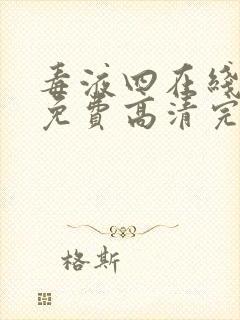 毒液四在线
免费高清完
格斯